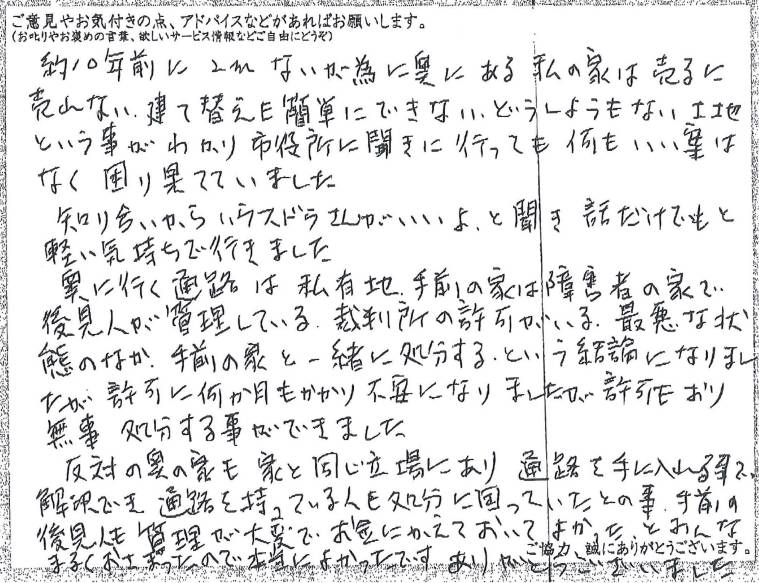 ご意見やお気付きの点、アドバイスなどがあればお願いします。
(お叱りやお褒めの言葉、欲しいサービス情報などご自由にどうぞ)
約10年前に ないが為に奥にある私の家は売るに
売れない、建て替えも簡単にできない、どうしようもない土地
という事がわかり市役所に聞きに行っても何もいい事は
なく困り果てていました
知り合いから ハウスドゥさんがいいよ、と聞き話だけでもと
軽い気持ちで行きました
奥に行く通路は私有地、手前の家は障害者の家で
後見人が管理している、裁判所の許可がいる、最悪な状
態のなか、手前の家と一緒に処分する、という結論になりまし
たが許可に何か月もかかり不安になりましたが許可もおり
無事処分する事ができました
反対の奥の家も家と同じ立場にあり通路を手に入れる事で、
解決でき通路を持っている人も処分に困っていたとの事、手前の
後見人も管理が大変でお金にかえておいてよかったとみんな
まるくおさまったので本当によかったです ありがとうございました
ご協力、誠にありがとうございます。